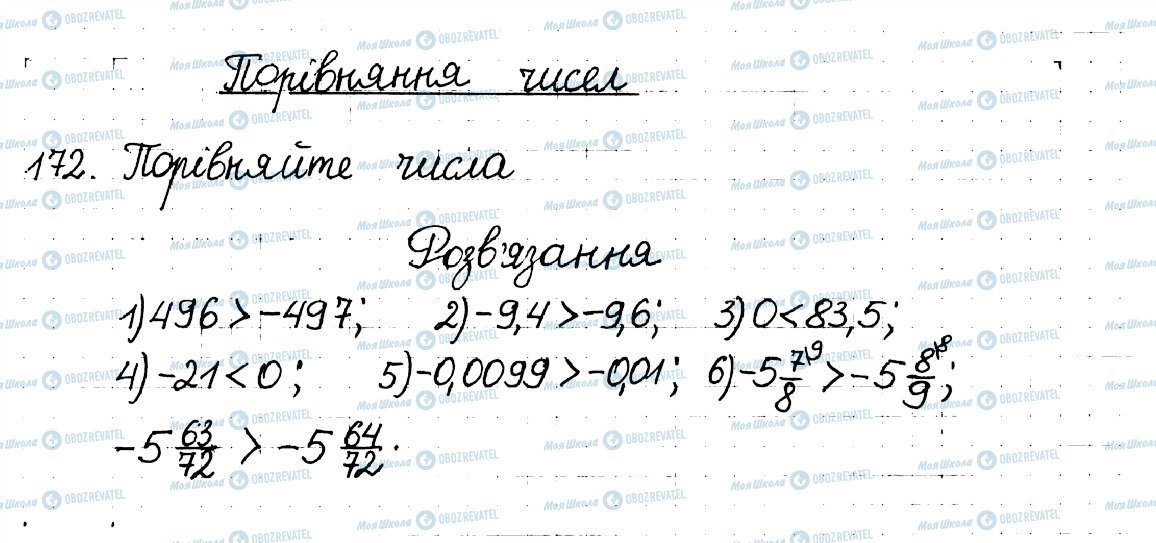 Порівняння чисел
172. Порівняйте числа
Розв'язання
1) 496 > -497; 2) -9,4 > -9,6; 3) 0 < 83,5;
4) -21 < 0; 5) -0,0099 > -0,01; 6) -5 7\9/8 > -5 8\8/9;
-5 63/72 > -5 64/72.
Моя Школа OBOZREVATEL